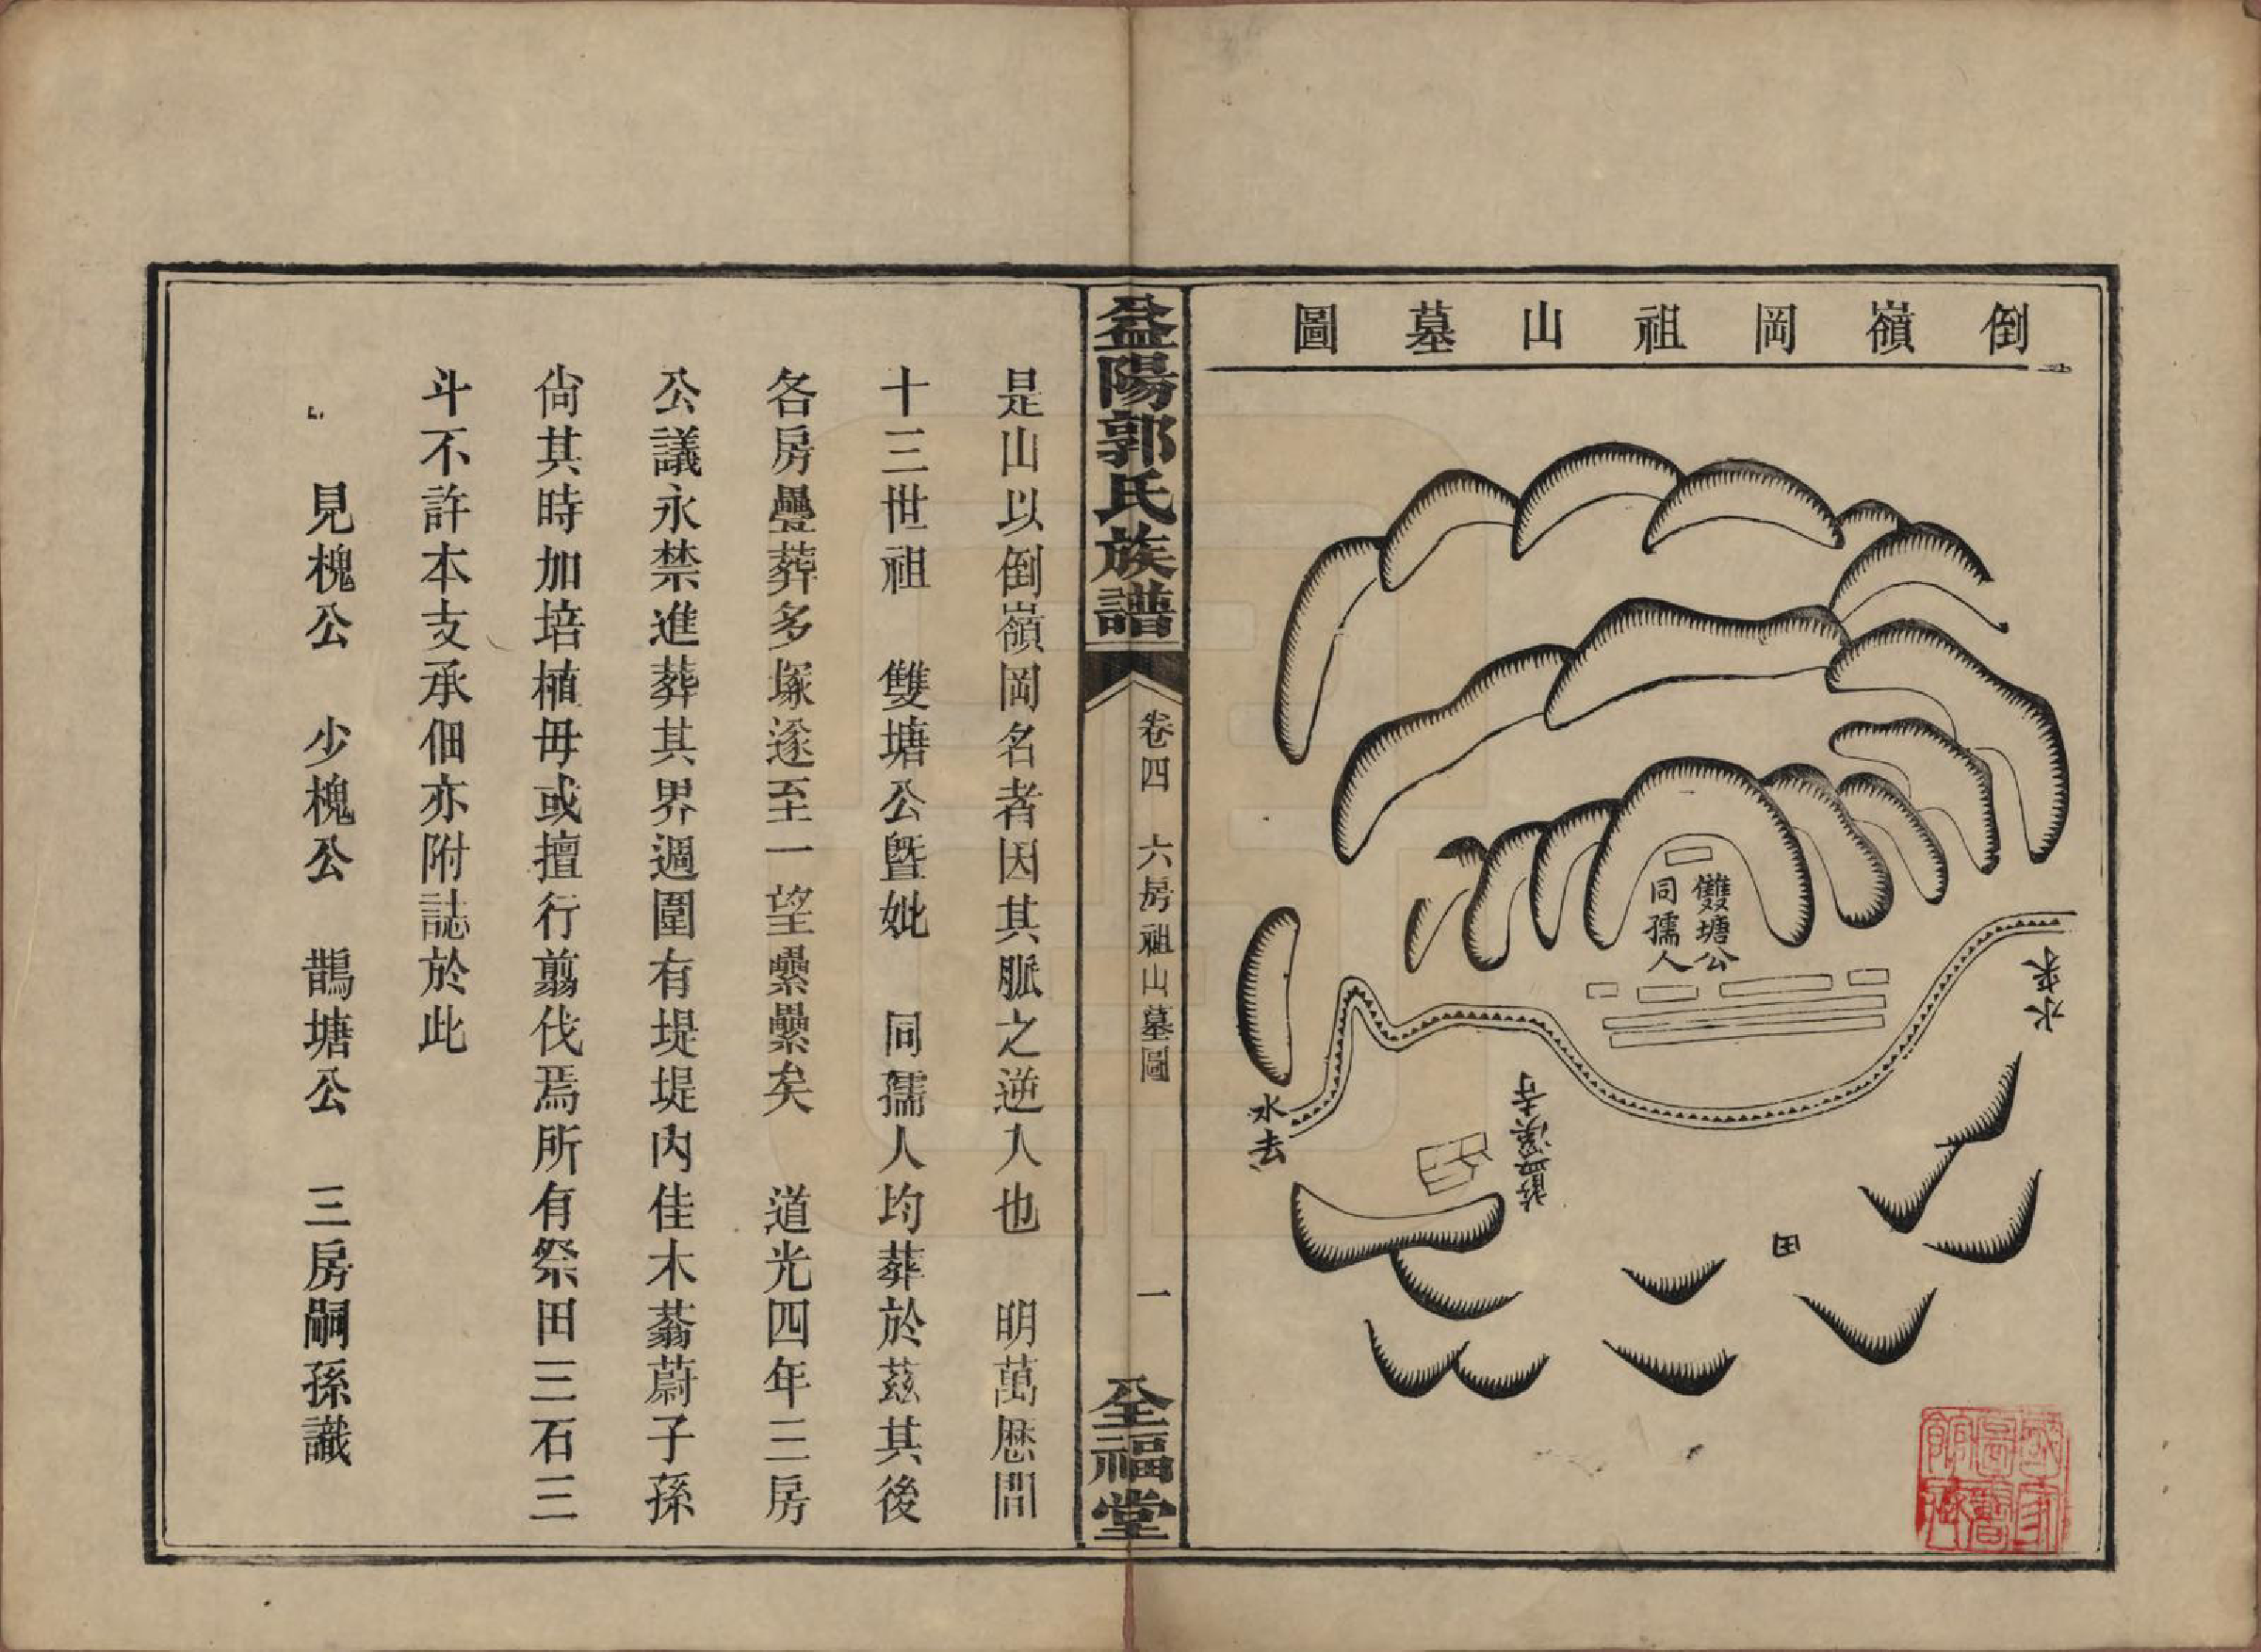 倒嶺岡祖山墓圖
雙塘公
同孺人
水來
水去
溪寺
田
益陽郭氏族譜
卷四 六房祖山墓圖
一
全福堂
是山以倒嶺岡名者因其脈之逆入也 明萬曆間
十三世祖 雙塘公暨妣 同孺人均葬於茲其後
各房疊葬多塚遂至一望纍纍矣 道光四年三房
公議永禁進葬其界週圍有堤堤內佳木蓊蔚子孫
尙其時加培植毋或擅行翦伐焉所有祭田三石三
斗不許本支承佃亦附誌於此
見槐公 少槐公 鵲塘公 三房嗣孫識
國家圖書館藏